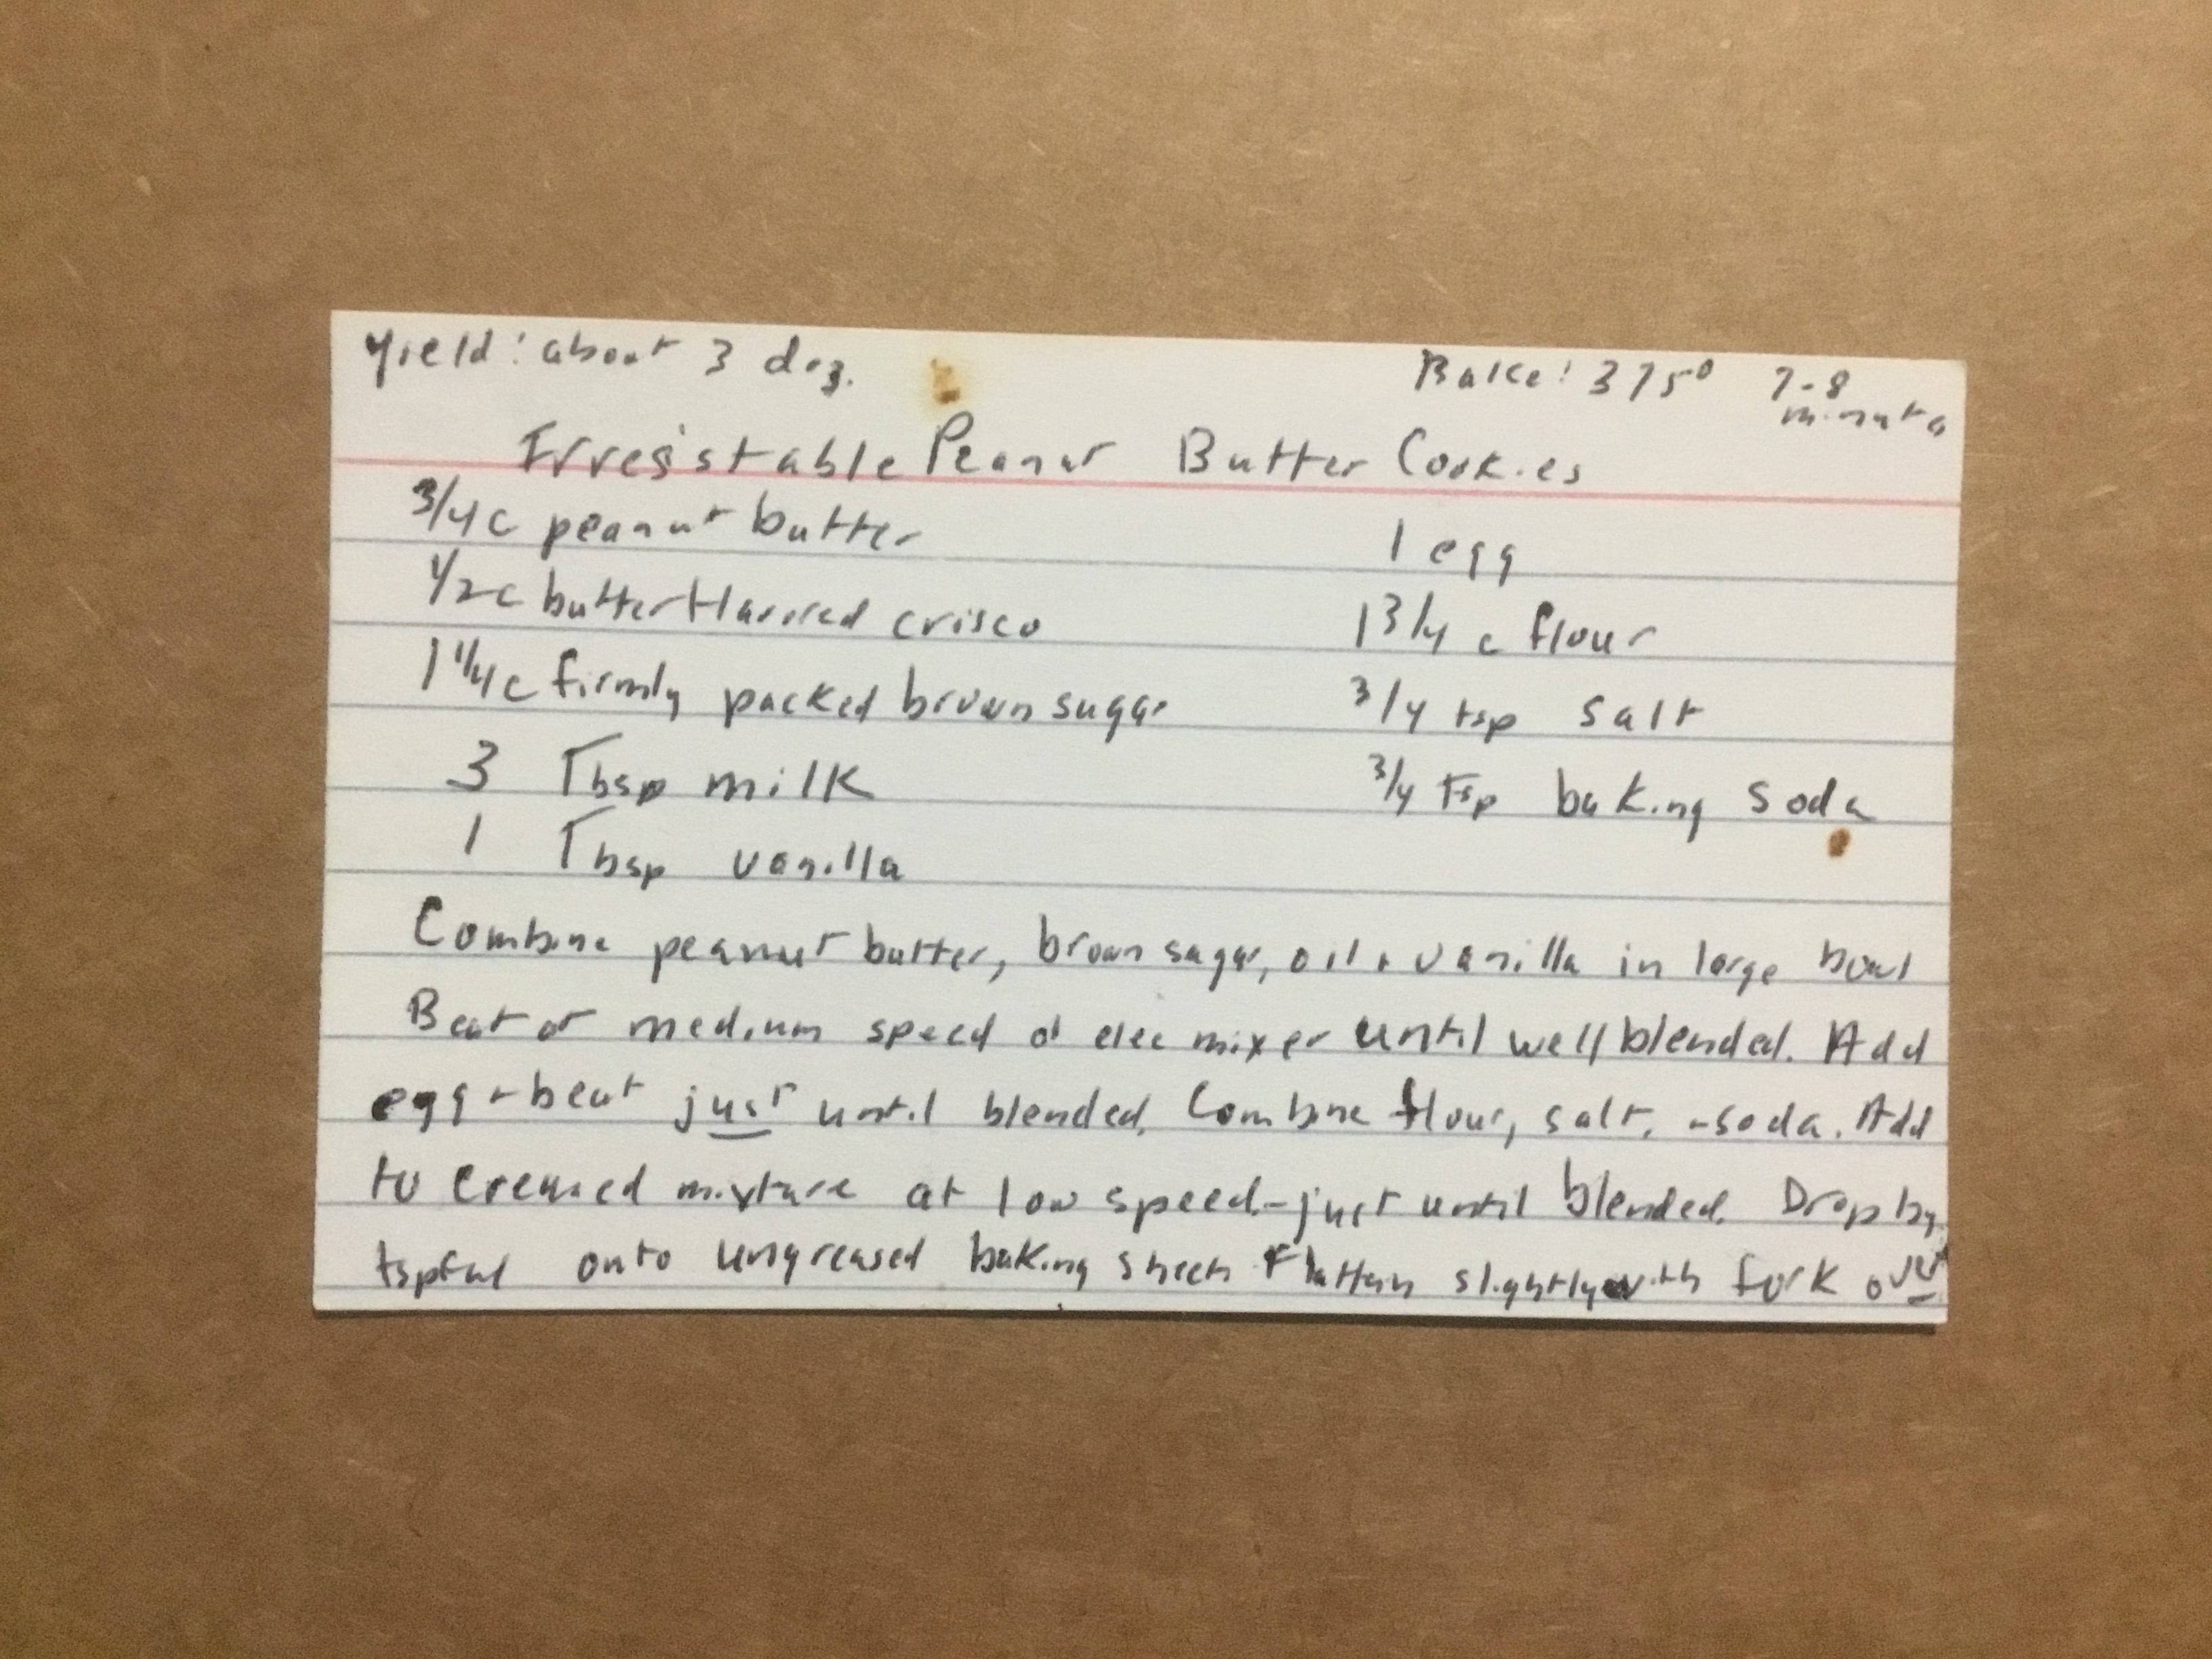 Yield: about 3 doz.
Bake: 375° 7-8
minutes
Irresistable Peanut Butter Cookies
3/4 c peanut butter
1 egg
1/2 c butter flavored crisco
1 3/4 c flour
1 1/4 c firmly packed brown sugar
3/4 tsp salt
3 Tbsp milk
3/4 tsp baking soda
1 Tbsp vanilla
Combine peanut butter, brown sugar, oil + vanilla in large bowl
Beat at medium speed of elec mixer until well blended. Add
egg + beat just until blended. Combine flour, salt, + soda. Add
to creamed mixture at low speed - just until blended. Drop by
tspful onto ungreased baking sheet. Flatten slightly with fork over